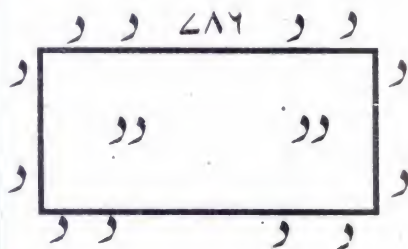 و و ۷۸۶ و و
و و
وو وو
و و
و و و و